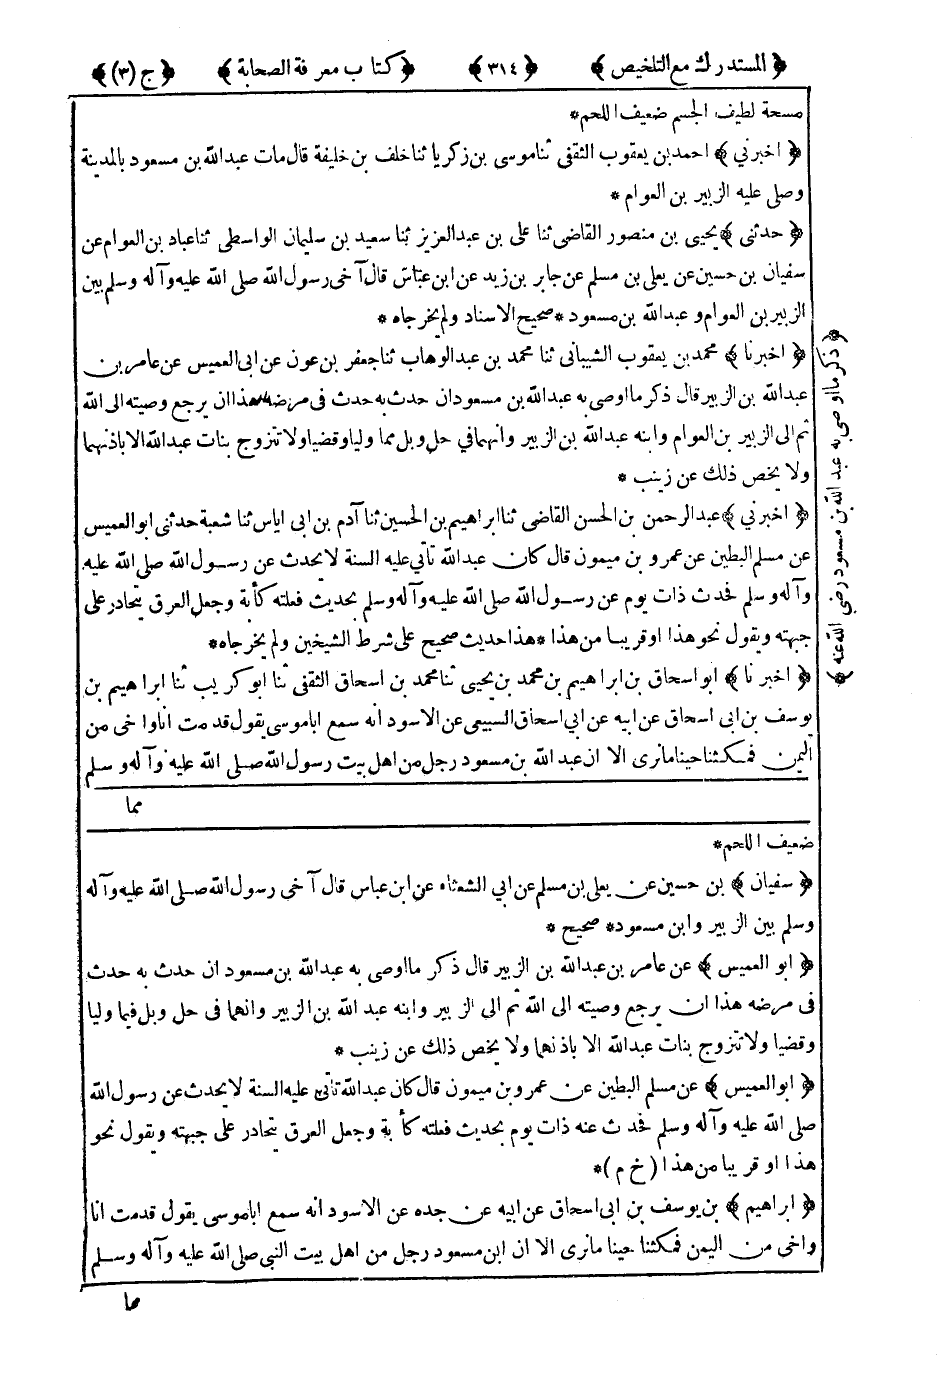 ﴿ المستدرك مع التلخيص ﴾ ﴿ ٣١٤ ﴾ ﴿ كتاب معرفة الصحابة ﴾ ﴿ ج (٣) ﴾
مسحة لطيف الجسم ضعيف اللحم*
﴿ اخبرني ﴾ احمد بن يعقوب الثقفى ثنا موسى بن زكريا ثنا خلف بن خليفة قال مات عبد الله بن مسعود بالمدينة
وصلى عليه الزبير بن العوام *
﴿ حدثنى ﴾ يحيى بن منصور القاضى ثنا على بن عبد العزيز ثنا سعيد بن سليمان الواسطى ثنا عباد بن العوام عن
سفيان بن حسين عن يعلى بن مسلم عن جابر بن زيد عن ابن عباس قال آخى رسول الله صلى الله عليه وآله وسلم بين
الزبير بن العوام و عبد الله بن مسعود * صحيح الاسناد ولم يخرجاه *
﴿ اخبرنا ﴾ محمد بن يعقوب الشيبانى ثنا محمد بن عبد الوهاب ثنا جعفر بن عون عن ابى العميس عن عامر بن
عبد الله بن الزبير قال ذكر ما اوصى به عبد الله بن مسعود ان حدث به حدث فى مرضه هذا ان يرجع وصيته الى الله
ثم الى الزبير بن العوام وابنه عبد الله بن الزبير وانهما في حل وبل مما وليا وقضيا ولا تتزوج بنات عبد الله الا باذنهما
ولا يخص ذلك عن زينب *
﴿ اخبرني ﴾ عبد الرحمن بن الحسن القاضى ثنا ابراهيم بن الحسين ثنا آدم بن ابى اياس ثنا شعبة حدثنى ابو العميس
عن مسلم البطين عن عمرو بن ميمون قال كان عبد الله تأتي عليه السنة لا يحدث عن رسول الله صلى الله عليه
وآله وسلم فحدث ذات يوم عن رسول الله صلى الله عليه وآله وسلم بحديث فعلته كأبة وجعل العرق يتحادر على
جبهته ويقول نحو هذا او قريبا من هذا * هذا حديث صحيح على شرط الشيخين ولم يخرجاه*
﴿ اخبرنا ﴾ ابو اسحاق بن ابراهيم بن محمد بن يحيى ثنا محمد بن اسحاق الثقفى ثنا ابو كريب ثنا ابراهيم بن
يوسف بن ابى اسحاق عن ابيه عن ابي اسحاق السبيعى عن الاسود انه سمع ابا موسى يقول قدمت انا واخى من
اليمن فمكثنا حينا مانرى الا ان عبد الله بن مسعود رجل من اهل بيت رسول الله صلى الله عليه وآله وسلم
مما
﴿ ذكر ما اوصى به عبد الله بن مسعود رضى الله عنه ﴾
ضعيف اللحم*
﴿ سفيان ﴾ بن حسين عن يعلى بن مسلم عن ابي الشعثاء عن ابن عباس قال آخى رسول الله صلى الله عليه وآله
وسلم بين الزبير وابن مسعود* صحيح *
﴿ ابو العميس ﴾ عن عامر بن عبد الله بن الزبير قال ذكر ما اوصى به عبد الله بن مسعود ان حدث به حدث
فى مرضه هذا ان يرجع وصيته الى الله ثم الى الزبير وابنه عبد الله بن الزبير وانهما فى حل وبل فيما وليا
وقضيا ولا تتزوج بنات عبد الله الا باذنهما ولا يخص ذلك عن زينب *
﴿ ابو العميس ﴾ عن مسلم البطين عن عمرو بن ميمون قال كان عبد الله تأتي عليه السنة لا يحدث عن رسول الله
صلى الله عليه وآله وسلم فحدث عنه ذات يوم بحديث فعلته كأبة وجعل العرق يتحادر على جبهته ويقول نحو
هذا او قريبا من هذا (خ م)*
﴿ ابراهيم ﴾ بن يوسف بن ابى اسحاق عن ابيه عن جده عن الاسود انه سمع ابا موسى يقول قدمت انا
واخى من اليمن فمكثنا حينا مانرى الا ان ابن مسعود رجل من اهل بيت النبى صلى الله عليه وآله وسلم
مما